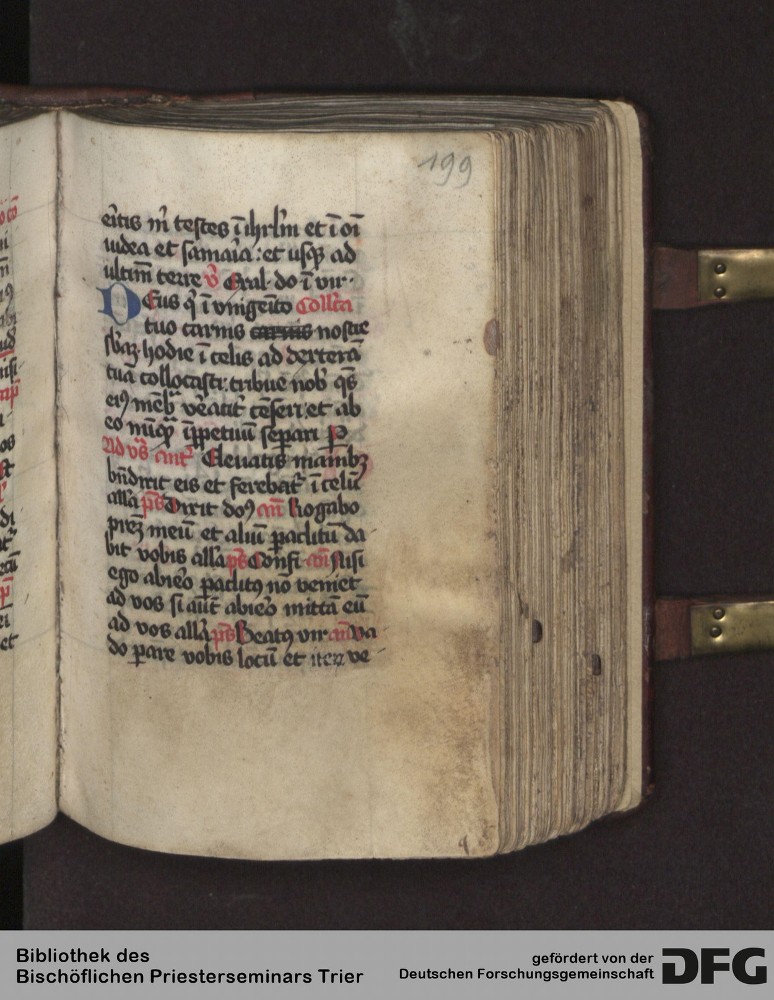 199
eritis m̄ testes ī ihrl̄m et ī oī
iudea et samaīa: et usqꝫ ad
ultim̄ terre v̄ Exal. do ī vir.
Deus q̇ ī vnigeīto Coll̄ta
tuo carnis carnis nostre
sb̄az hodie ī celis ad dexterā
tuā collocasti: tribue nob̄ qs̄
eiꝰ meb̄ v̄eatr̄ cēseri: et ab
eo nūqꝫ ip̄petuū separi P
Ad vs̄ ant̄ Eleuatis manibꝫ
bn̄dixit eis et ferebat̄ ī celū
all̄a ps̄ Dixit doꝰ an̄ Rogabo
prez meū et aliū paclitū da
bit vobis all̄a ps̄ Confi an̄ Nisi
ego abiero paclitꝰ nō veniet
ad vos si aut̄ abiero mittā eū
ad vos all̄a ps̄ Beatꝰ vir an̄ Va
do pare vobis locū et iteꝝ ve
Bibliothek des
Bischöflichen Priesterseminars Trier
gefördert von der
Deutschen Forschungsgemeinschaft DFG